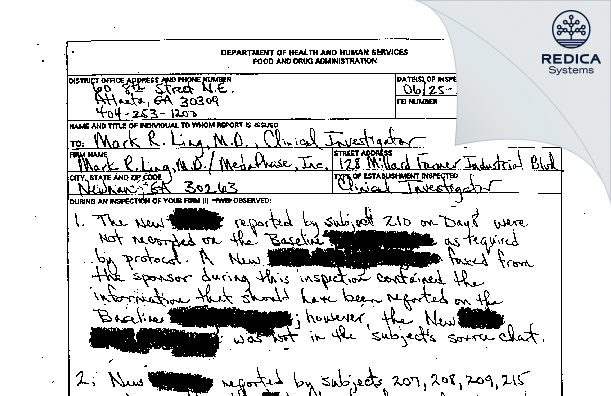 REDICA
Systems
DEPARTMENT OF HEALTH AND HUMAN SERVICES
FOOD AND DRUG ADMINISTRATION
DISTRICT OFFICE ADDRESS AND PHONE NUMBER
60 8th Street N.E.
Atlanta, GA 30309
404-253-1200
DATE(S) OF INSPE
06/25-
FEI NUMBER
NAME AND TITLE OF INDIVIDUAL TO WHOM REPORT IS ISSUED
TO: Mark R. Ling, M.D., Clinical Investigator
FIRM NAME
Mark R. Ling, M.D./ MetaPhase, Inc.
STREET ADDRESS
128 Millard Farmer Industrial Blvd
CITY, STATE AND ZIP CODE
Newnan, GA 30263
TYPE OF ESTABLISHMENT INSPECTED
Clinical Investigator
DURING AN INSPECTION OF YOUR FIRM (I) (WE) OBSERVED:
1. The New reported by subject 210 on Day 8 were
not recorded on the Baseline as required
by protocol. A New faxed from
the sponsor during this inspection contained the
information that should have been reported on the
Baseline ; however, the New
was not in the subject's source chart.
2. New reported by subjects 207, 208, 209, 215